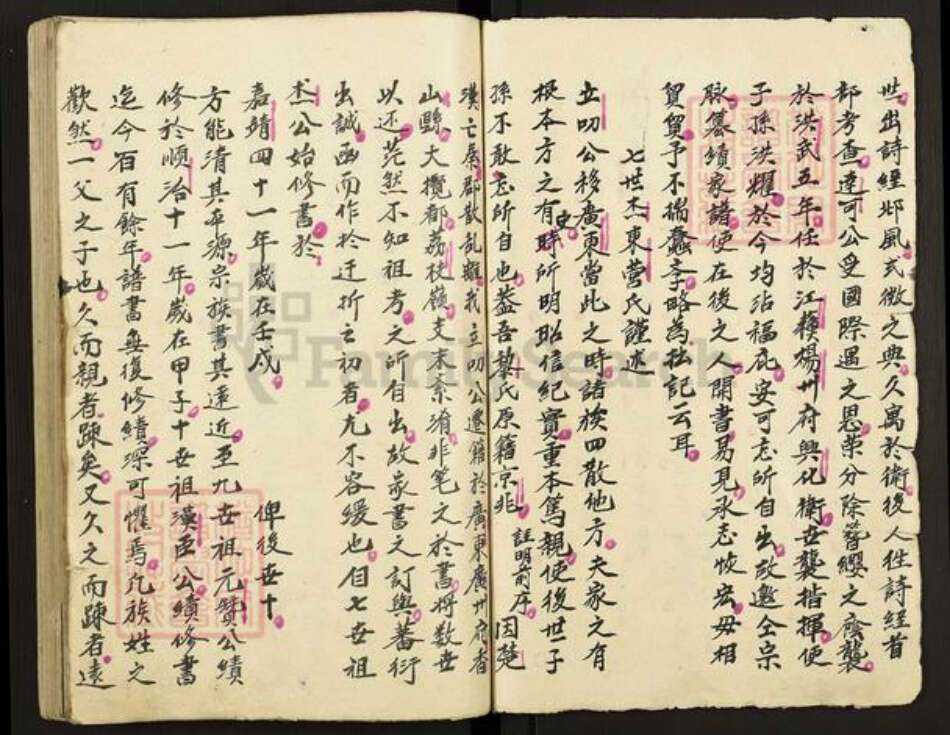 世出詩經邶風式微之典久寓於衛後人往詩經首
部考查連可公受國際遇之恩榮分除簪纓之廕襲
於洪武五年任於江蘇楊州府興化衛世襲指揮使
子孫洪耀於今均沾福庇安可忘所自出故邀仝宗
脉纂續家譜使在後之人開書易見承志恢宏毋相
貿貿予不揣蠢李略為拙記云耳
七世杰東營氏謹述
立叨公移廣東當此之時諸族四散他方夫家之有
梗本方之有史時所明昭信紀實重本篤親使後世子
孫不敢忘所自也蓋吾黎氏原籍京兆註明前序因楚
漢亡屬郡散乱離我立叨公遷籍於廣東廣州府香
山縣大攬都荔枝嶺支末紊淆非笔之於書将数世
以还茫然不知祖考之所自出故家書之訂與蕃衍
出誠函而作於迁折之初者尤不容緩也自七世祖
杰公始修書於
嘉靖四十一年歲在壬戌俾後世十
方能清其本源宗族書其遠近至九世祖元賛公續
修於順治十一年歲在甲子十世祖漢臣公續修書
迄今百有餘年譜書無復修續深可懼焉凡族姓之
歡然一父之子也久而親者踈矣又久之而踈者遠
FamilySearch